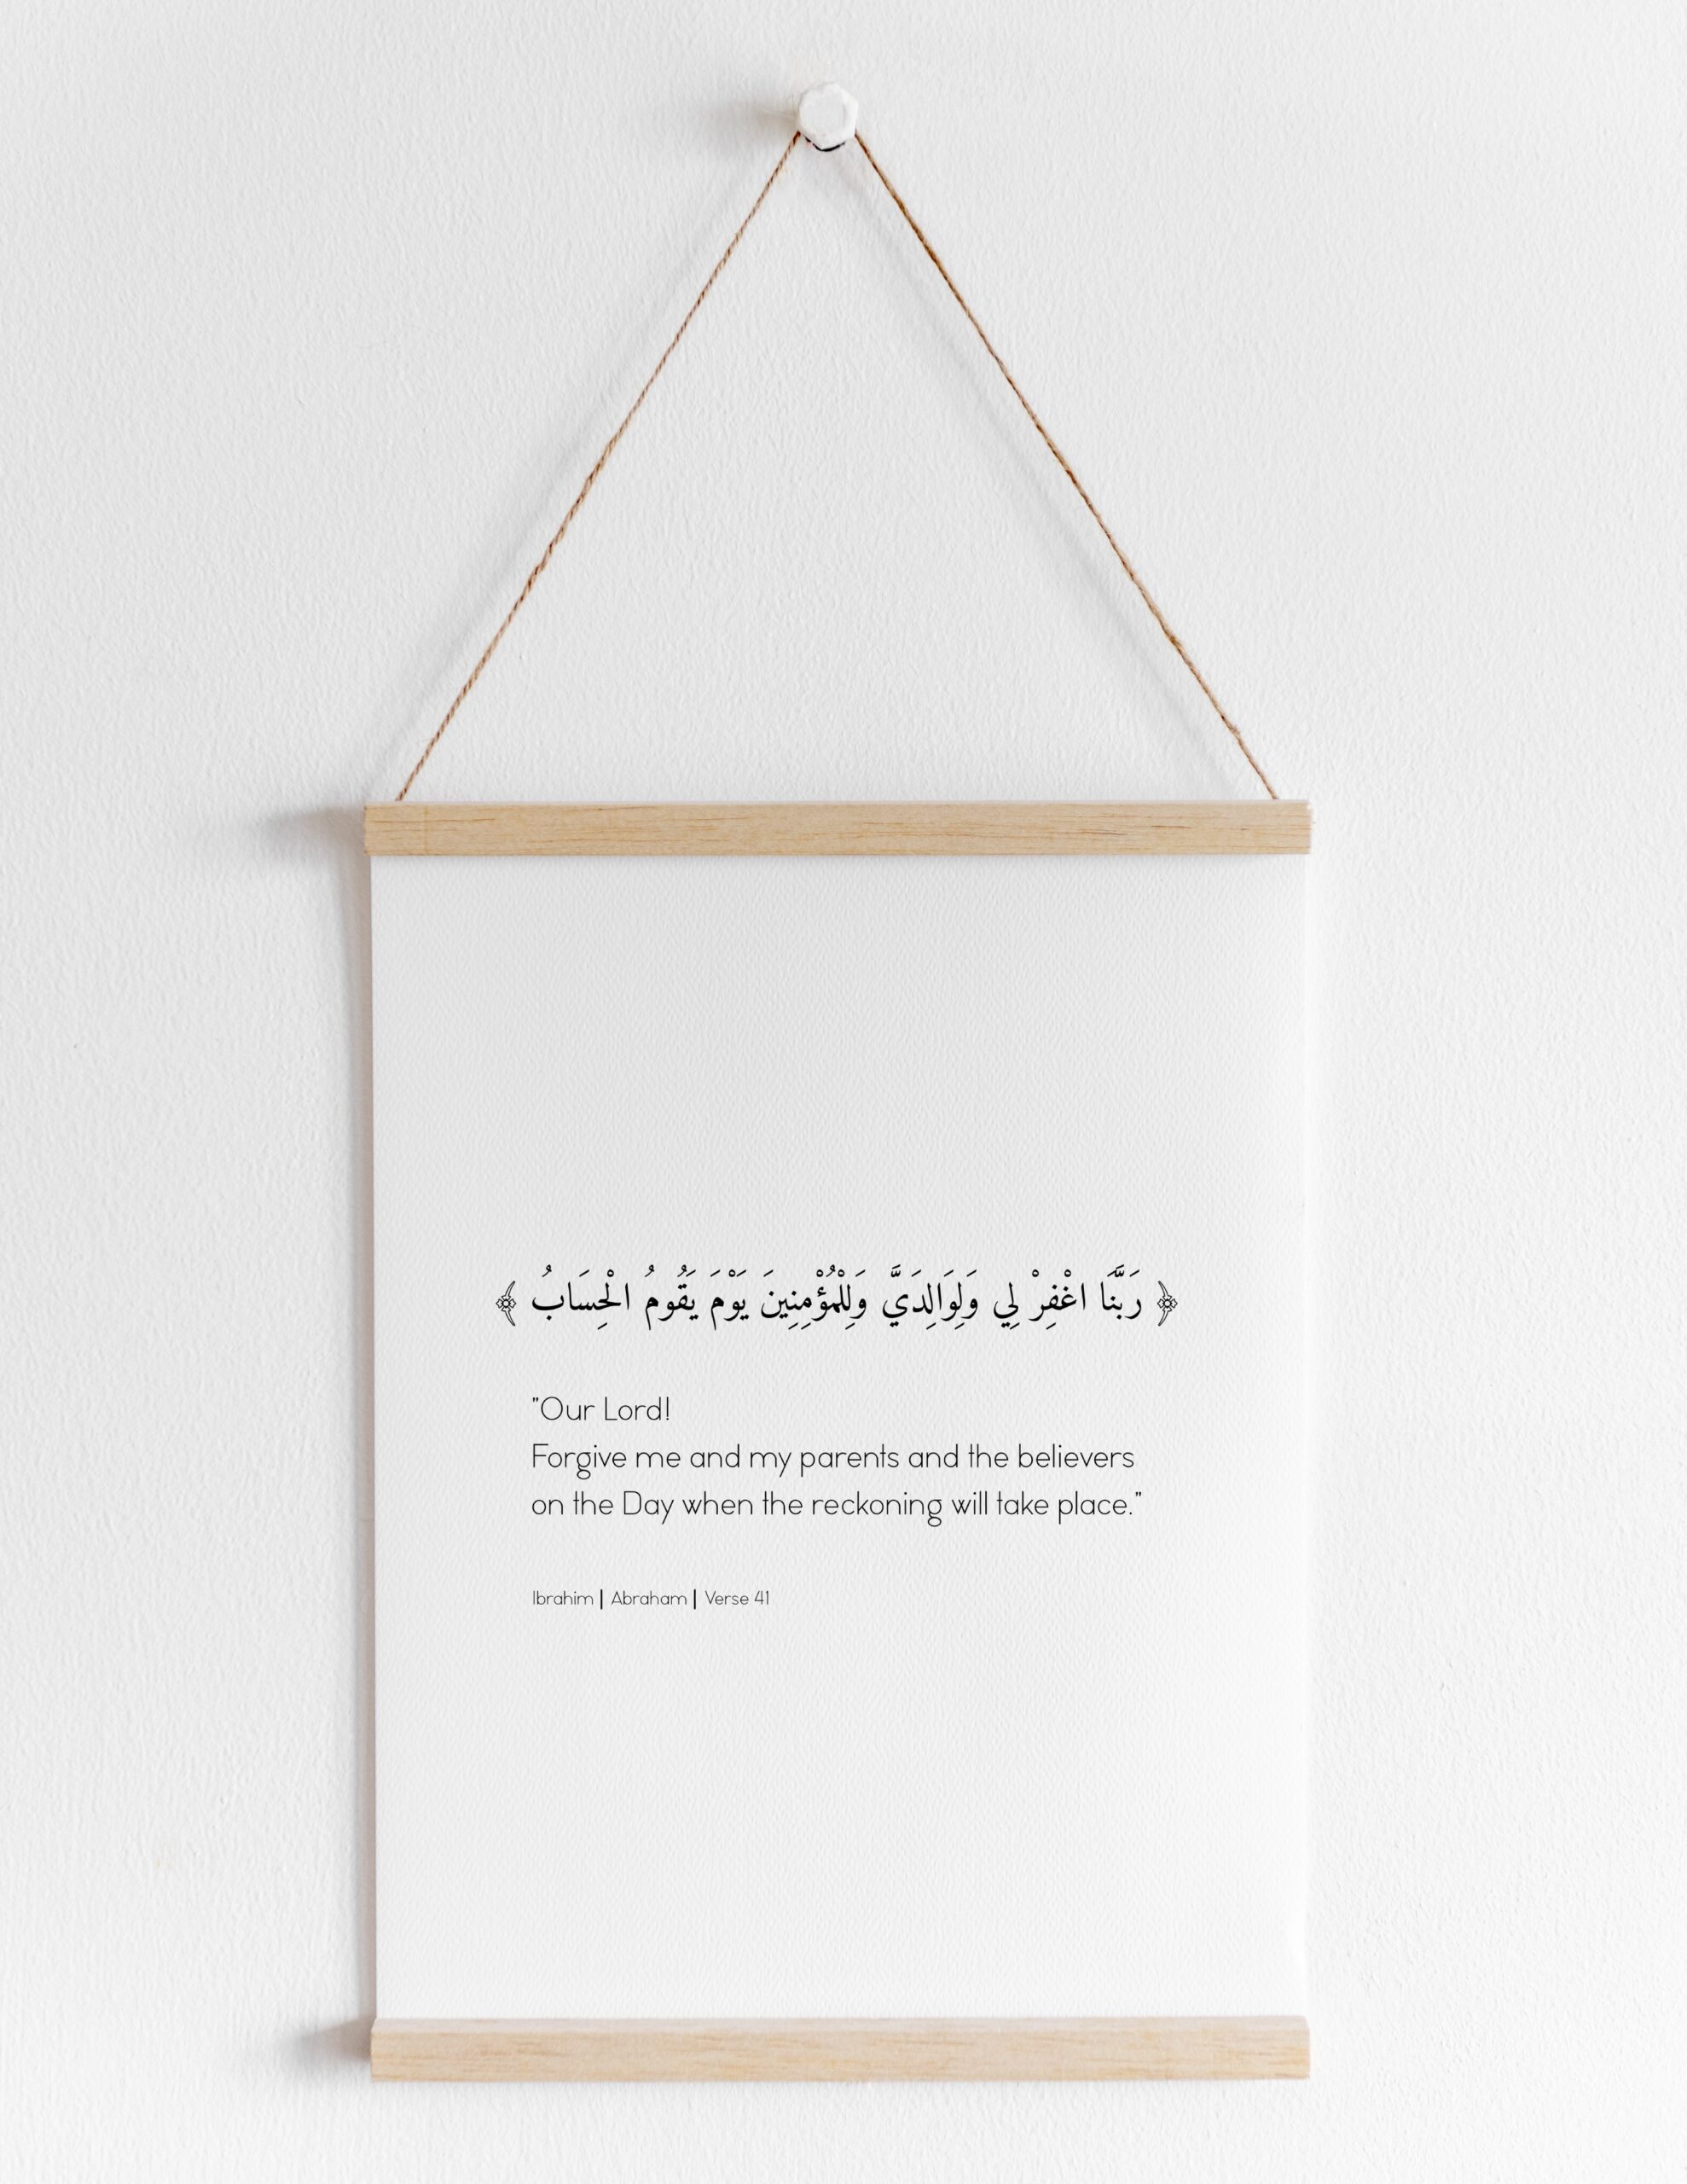 ﴿ رَبَّنَا اغْفِرْ لِي وَلِوَالِدَيَّ وَلِلْمُؤْمِنِينَ يَوْمَ يَقُومُ الْحِسَابُ ﴾
"Our Lord!
Forgive me and my parents and the believers
on the Day when the reckoning will take place."
Ibrahim | Abraham | Verse 41